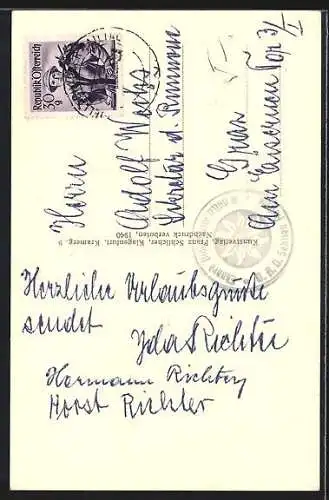 Republik Österreich
30 g
Herrn
Rudolf
Sekretär d.
Graz
Am Eisernen Tor 3/I
Kunstverlag Franz Schilcher, Klagenfurt, Kramerg. 9
Nachdruck verboten, 1940
Herzliche Urlaubsgrüße
sendet Yda Richter
Hermann Richter
Horst Richter